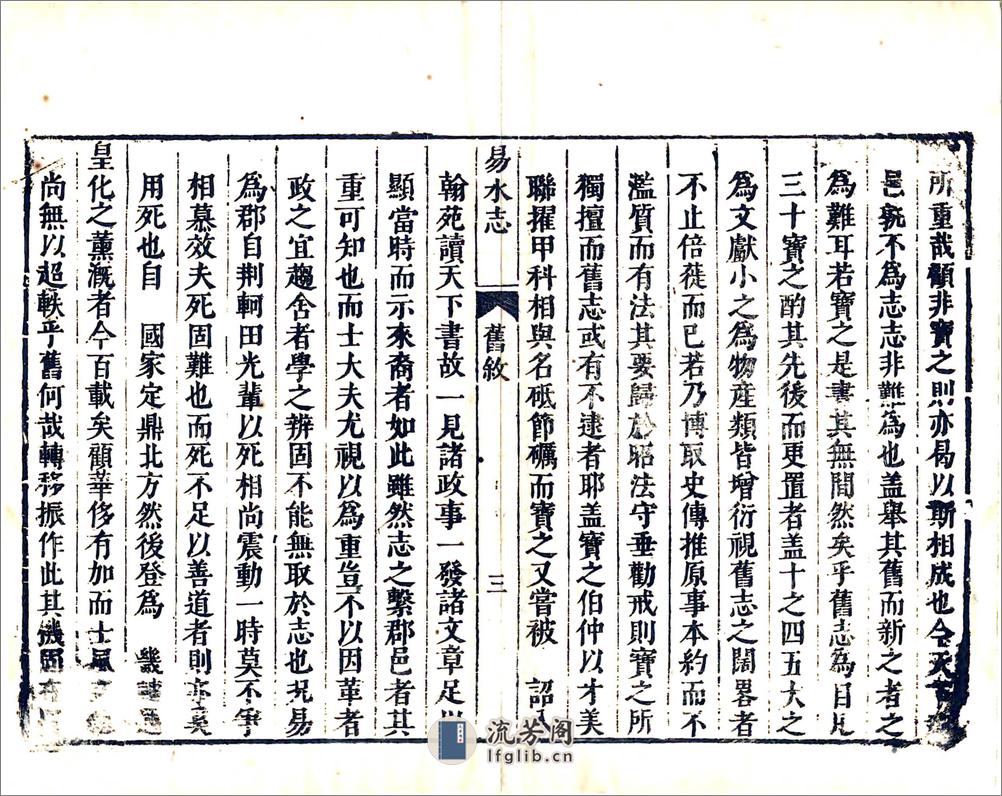 所重哉顧非寶之則亦曷以斯相成也今天下
邑孰不為志志非難為也盖舉其舊而新之者之
為難耳若寶之是書其無間然矣乎舊志為目凡
三十寶之酌其先後而更置者盖十之四五大之
為文獻小之為物産類皆增衍視舊志之闊畧者
不止倍蓰而已若乃博取史傳推原事本約而不
濫質而有法其要歸於昭法守垂勸戒則寶之所
獨擅而舊志或有不逮者耶盖寶之伯仲以才美
聯擢甲科相與名砥節礪而寶之又嘗被 詔入
易水志 舊敘 三
翰苑讀天下書故一見諸政事一發諸文章足以
顯當時而示來裔者如此雖然志之繫郡邑者其
重可知也而士大夫尤視以為重豈不以因革者
政之宜趨舍者學之辨固不能無取於志也况易
為郡自荆軻田光輩以死相尚震動一時莫不争
相慕效夫死固難也而死不足以善道者則亦奚
用死也自 國家定鼎北方然後登為 畿
皇化之薰漑者今百載矣顧華侈有加而士風
尚無以超軼乎舊何哉轉移振作此其機固
流芳阁
lfglib.cn